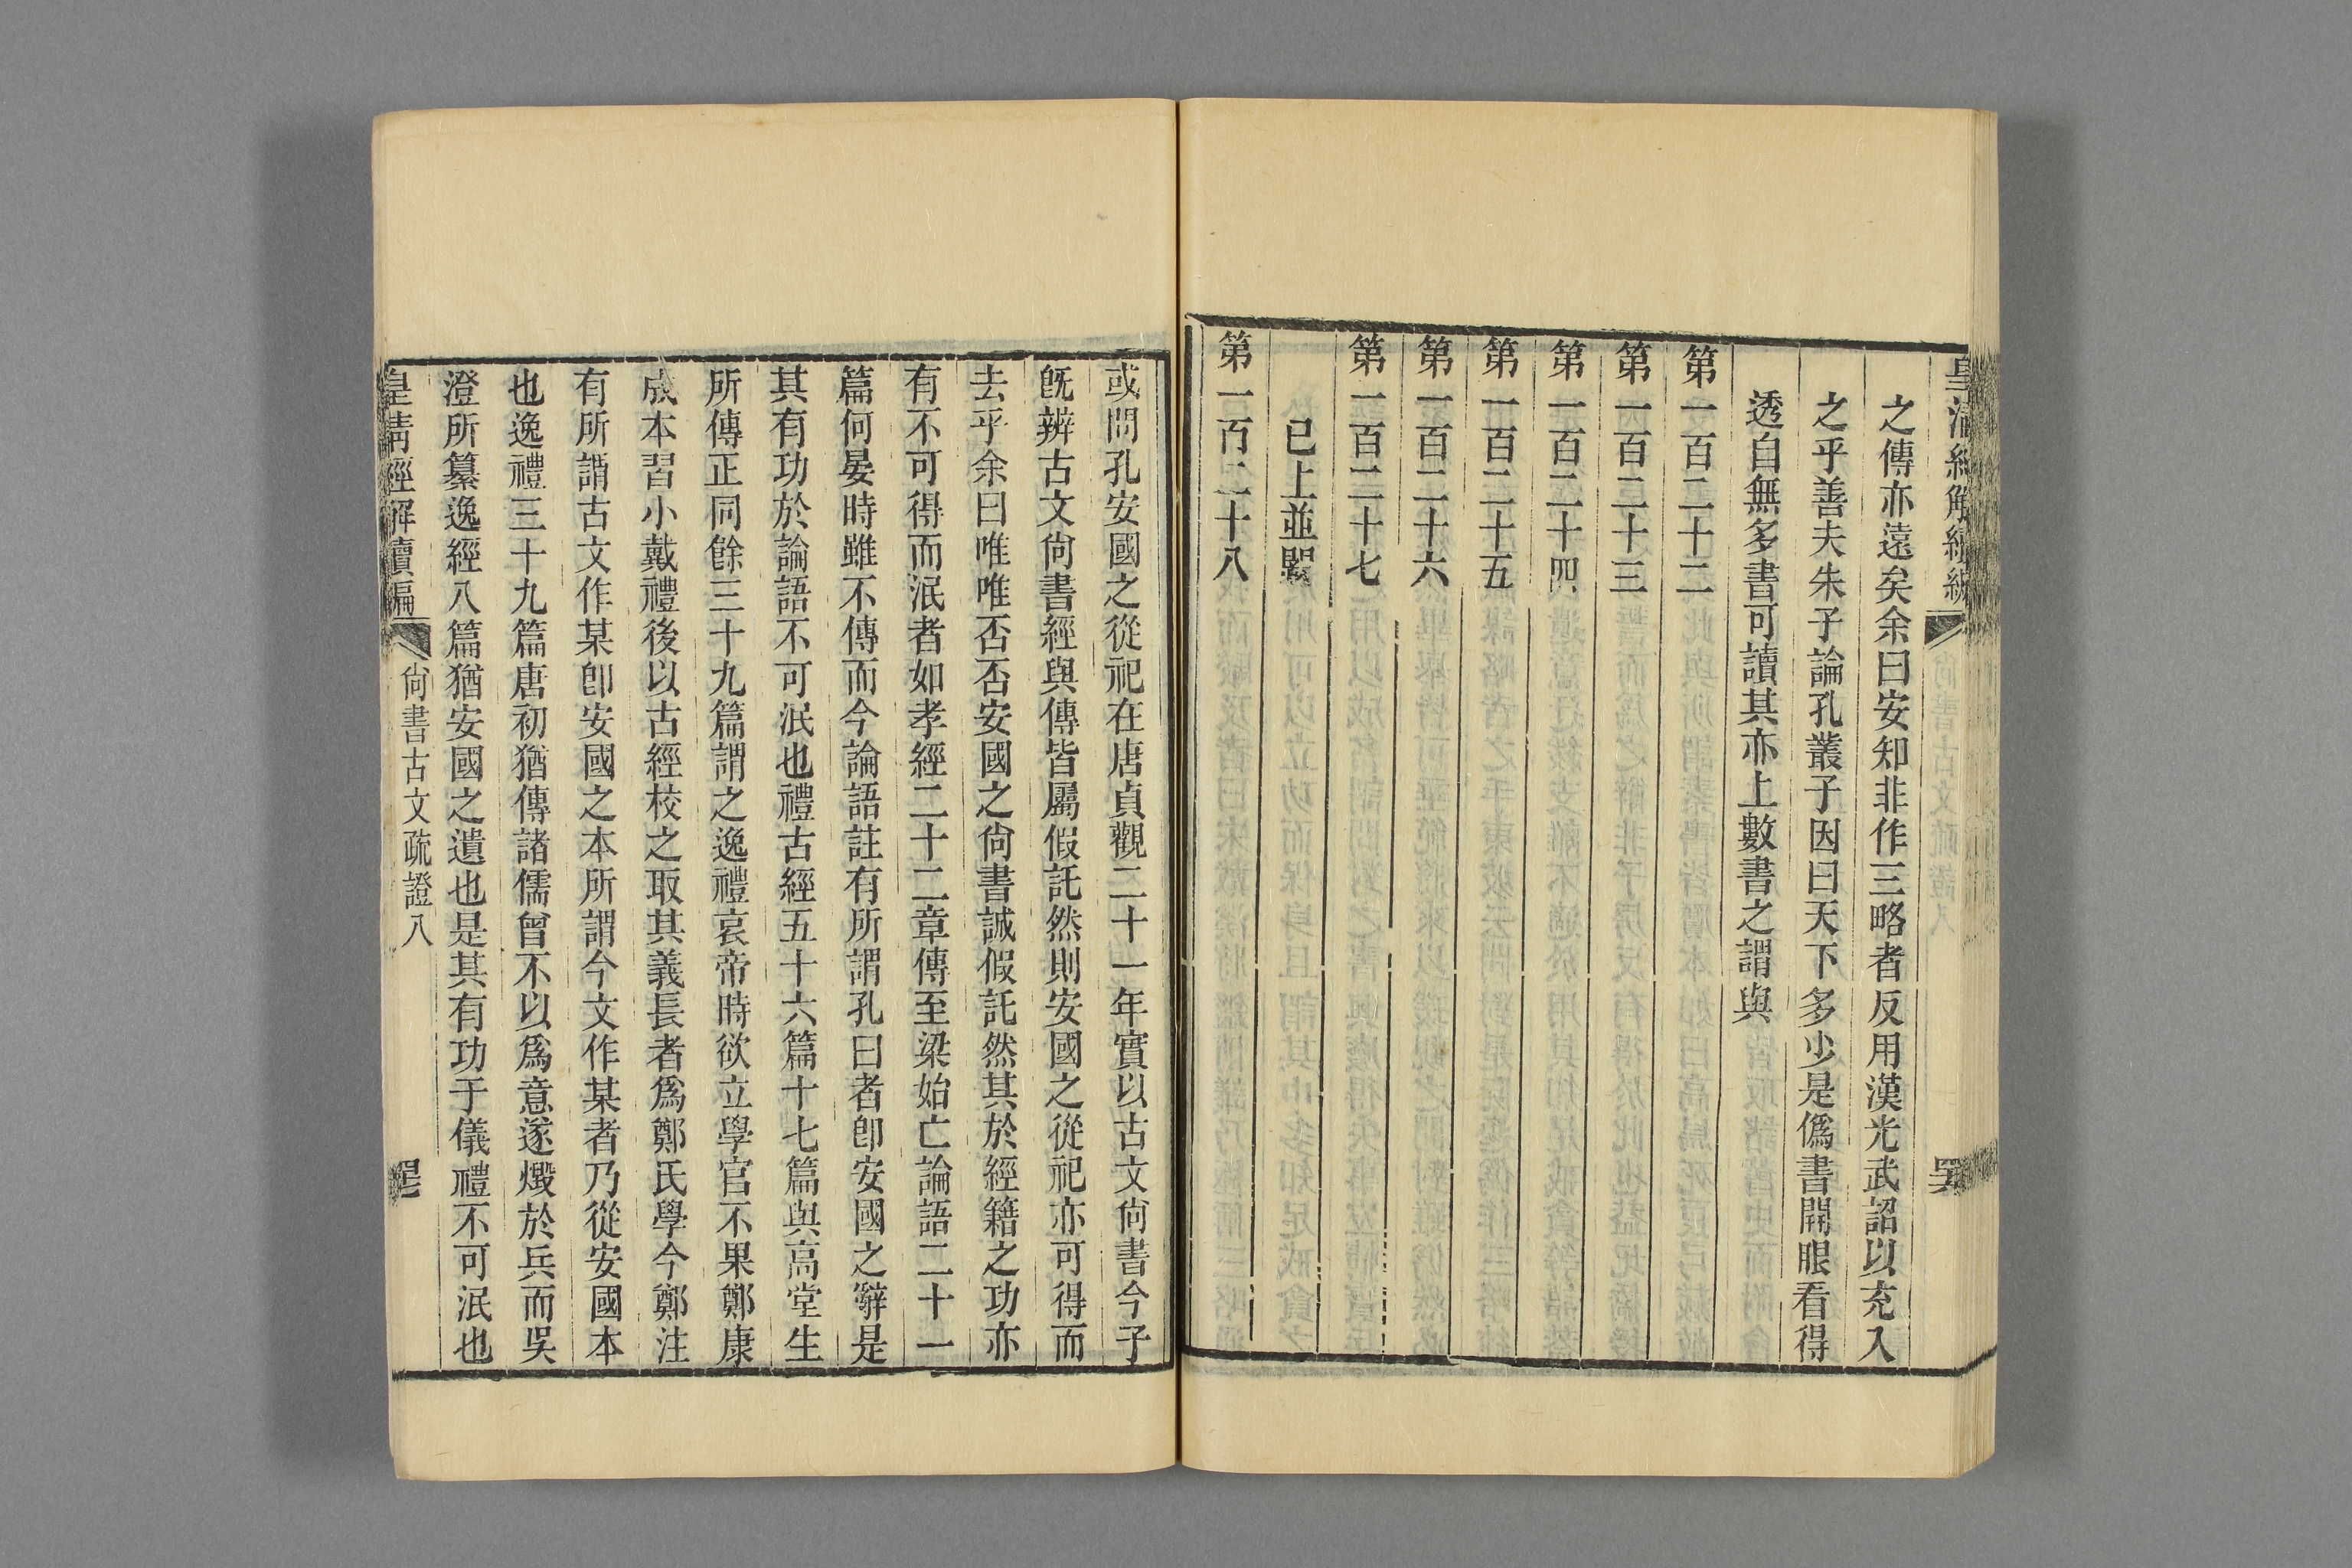 皇清經解續編
之傳亦遠矣余曰安知非作三略者反用漢光武詔以充入
之乎善夫朱子論孔叢子因曰天下多少是僞書開眼看得
透自無多書可讀其亦上數書之謂與
第一百二十二
第一百二十三
第一百二十四
第一百二十五
第一百二十六
第一百二十七
已上並闕
第一百二十八
或問孔安國之從祀在唐貞觀二十一年實以古文尙書今子
旣辨古文尙書經與傳皆屬假託然則安國之從祀亦可得而
去乎余曰唯唯否否安國之尙書誠假託然其於經籍之功亦
有不可得而泯者如孝經二十二章傳至梁始亡論語二十一
篇何晏時雖不傳而今論語註有所謂孔曰者卽安國之辭是
其有功於論語不可泯也禮古經五十六篇十七篇與高堂生
所傳正同餘三十九篇謂之逸禮哀帝時欲立學官不果鄭康
成本習小戴禮後以古經校之取其義長者爲鄭氏學今鄭注
有所謂古文作某卽安國之本所謂今文作某者乃從安國本
也逸禮三十九篇唐初猶傳諸儒曾不以爲意遂燬於兵而吳
澄所纂逸經八篇猶安國之遺也是其有功于儀禮不可泯也
皇清經解續編
尙書古文疏證八